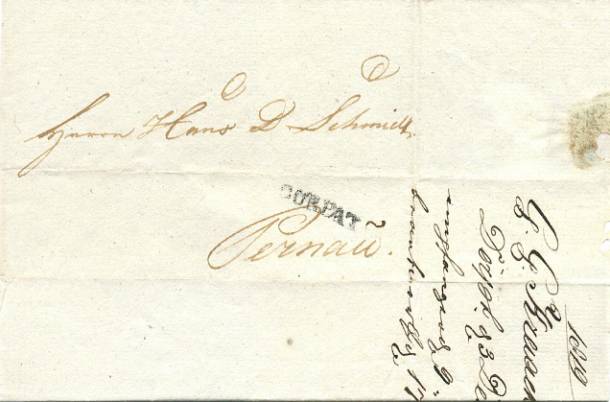 Herrn Hans D Schmidt,
DORPAT
Pernaü.
1819
G. G.
Dörpt d 3 De
empfangen d 9
beantwort d 17